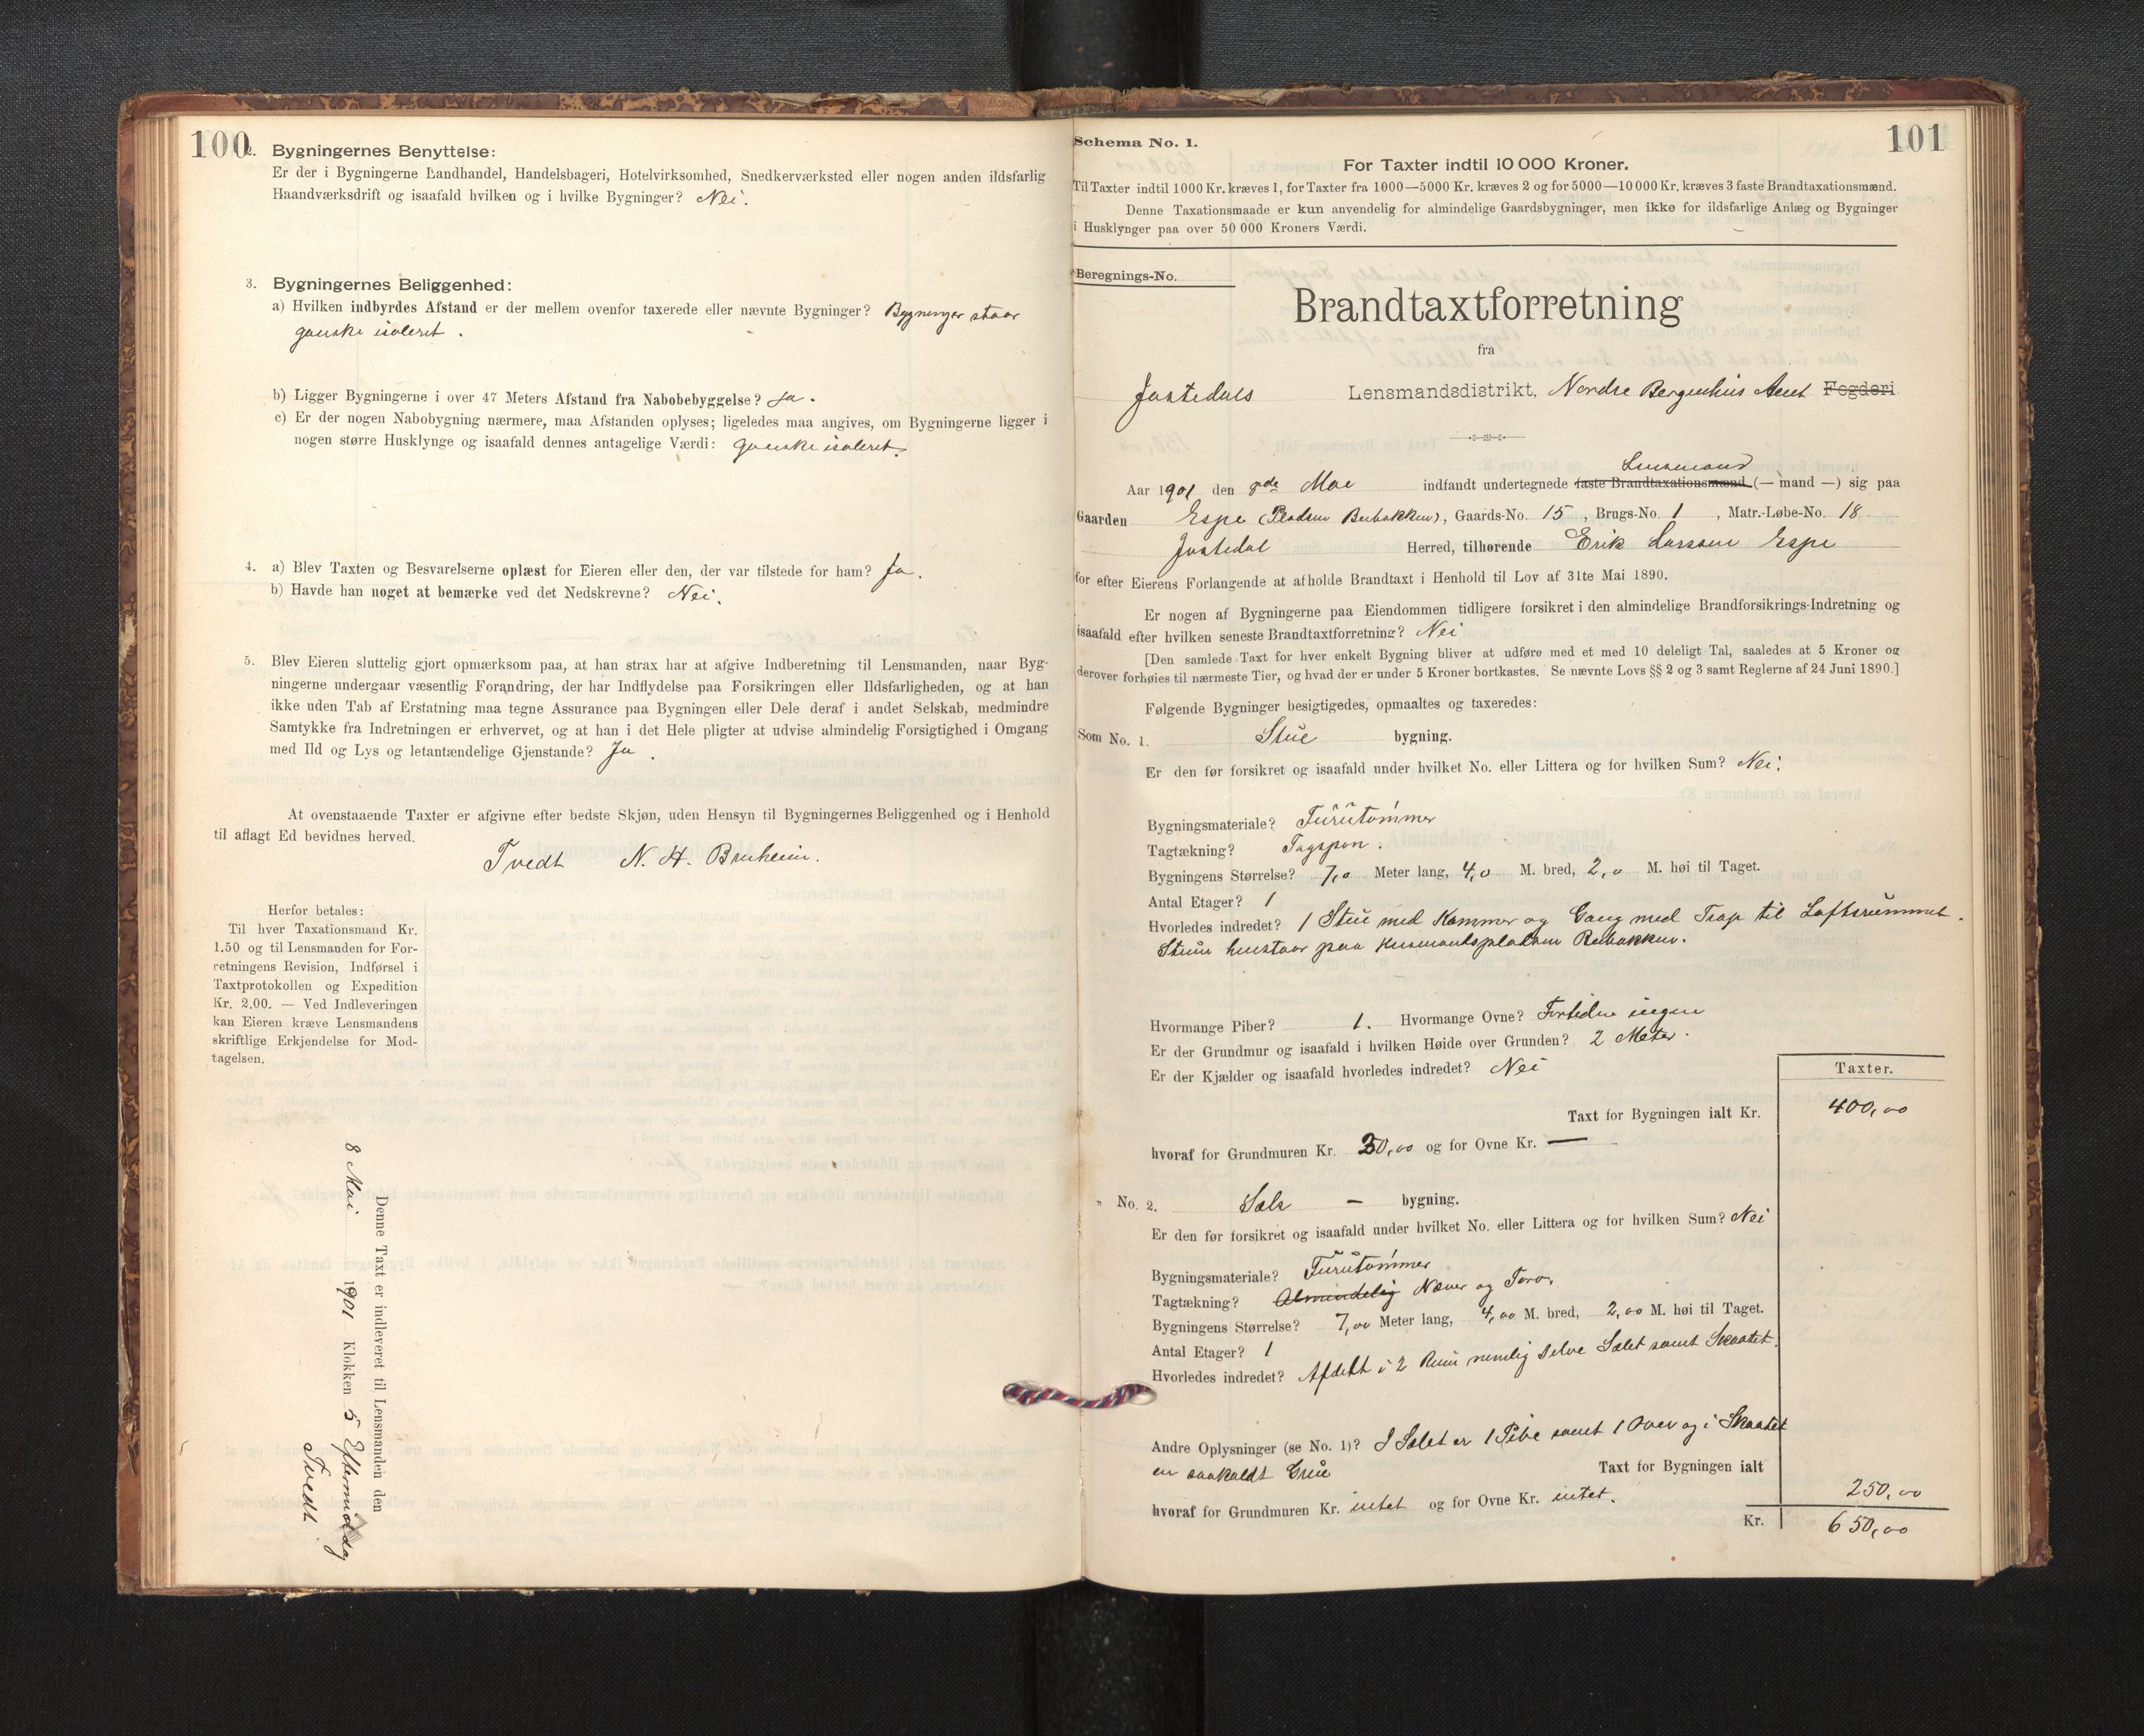 100
2. Bygningernes Benyttelse:
Er der i Bygningerne Landhandel, Handelsbageri, Hotelvirksomhed, Snedkerværksted eller nogen anden ildsfarlig
Haandværksdrift og isaafald hvilken og i hvilke Bygninger? Nei.
3. Bygningernes Beliggenhed:
a) Hvilken indbyrdes Afstand er der mellem ovenfor taxerede eller nævnte Bygninger? Bygninger staar
ganske isoleret .
b) Ligger Bygningerne i over 47 Meters Afstand fra Nabobebyggelse? Ja.
c) Er der nogen Nabobygning nærmere, maa Afstanden oplyses; ligeledes maa angives, om Bygningerne ligger i
nogen større Husklynge og isaafald dennes antagelige Værdi: ganske isoleret.
4. a) Blev Taxten og Besvarelserne oplæst for Eieren eller den, der var tilstede for ham? Ja.
b) Havde han noget at bemærke ved det Nedskrevne? Nei.
5. Blev Eieren sluttelig gjort opmærksom paa, at han strax har at afgive Indberetning til Lensmanden, naar Byg-
ningerne undergaar væsentlig Forandring, der har Indflydelse paa Forsikringen eller Ildsfarligheden, og at han
ikke uden Tab af Erstatning maa tegne Assurance paa Bygningen eller Dele deraf i andet Selskab, medmindre
Samtykke fra Indretningen er erhvervet, og at han i det Hele pligter at udvise almindelig Forsigtighed i Omgang
med Ild og Lys og letantændelige Gjenstande? Ja .
At ovenstaaende Taxter er afgivne efter bedste Skjøn, uden Hensyn til Bygningernes Beliggenhed og i Henhold
til aflagt Ed bevidnes herved.
Tvedt N. H. Bruheim.
Herfor betales:
Til hver Taxationsmand Kr.
1.50 og til Lensmanden for For-
retningens Revision, Indførsel i
Taxtprotokollen og Expedition
Kr. 2.00. — Ved Indleveringen
kan Eieren kræve Lensmandens
skriftlige Erkjendelse for Mod-
tagelsen.
Denne Taxt er indleveret til Lensmanden den
8 Mai 1901 Klokken 5 Eftermiddag
Tvedt
101
Schema No. 1.
For Taxter indtil 10 000 Kroner.
Til Taxter indtil 1000 Kr. kræves 1, for Taxter fra 1000—5000 Kr. kræves 2 og for 5000—10 000 Kr. kræves 3 faste Brandtaxationsmænd.
Denne Taxationsmaade er kun anvendelig for almindelige Gaardsbygninger, men ikke for ildsfarlige Anlæg og Bygninger
i Husklynger paa over 50 000 Kroners Værdi.
Beregnings-No.
Brandtaxtforretning
fra
Jostedals Lensmandsdistrikt, Nordre Bergenhus Amt Fogderi
Lensmand
Aar 1901 den 8de Mai indfandt undertegnede faste Brandtaxationsmænd (— mand —) sig paa
Gaarden Espe (Pladsen Bebakken), Gaards-No. 15 , Brugs-No. 1 , Matr.-Løbe-No. 18
Jostedal Herred, tilhørende Erik Larssen Espe
for efter Eierens Forlangende at afholde Brandtaxt i Henhold til Lov af 31te Mai 1890.
Er nogen af Bygningerne paa Eiendommen tidligere forsikret i den almindelige Brandforsikrings-Indretning og
isaafald efter hvilken seneste Brandtaxtforretning? Nei
[Den samlede Taxt for hver enkelt Bygning bliver at udføre med et med 10 deleligt Tal, saaledes at 5 Kroner og
derover forhøies til nærmeste Tier, og hvad der er under 5 Kroner bortkastes. Se nævnte Lovs §§ 2 og 3 samt Reglerne af 24 Juni 1890.]
Følgende Bygninger besigtigedes, opmaaltes og taxeredes:
Som No. 1. Stue bygning.
Er den før forsikret og isaafald under hvilket No. eller Littera og for hvilken Sum? Nei.
Bygningsmateriale? Furutømmer
Tagtækning? Tagspon.
Bygningens Størrelse? 7,0 Meter lang, 4,0 M. bred, 2,0 M. høi til Taget.
Antal Etager? 1
Hvorledes indredet? 1 Stue med Kammer og Gang med Trap til Loftsrummet.
Stuen henstaar paa Husmandspladsen Bebakken.
Hvormange Piber? 1. Hvormange Ovne? Fortiden ingen
Er der Grundmur og isaafald i hvilken Høide over Grunden? 2 Meter.
Er der Kjælder og isaafald hvorledes indredet? Nei
Taxter.
Taxt for Bygningen ialt Kr. 400,00
hvoraf for Grundmuren Kr. 30,00 og for Ovne Kr. —
" No. 2. Sels — bygning.
Er den før forsikret og isaafald under hvilket No. eller Littera og for hvilken Sum? Nei
Bygningsmateriale? Furutømmer
Tagtækning? Almindelig Næver og Torv.
Bygningens Størrelse? 7,00 Meter lang, 4,00 M. bred, 2,00 M. høi til Taget.
Antal Etager? 1
Hvorledes indredet? Afdelt i 2 Rum nemlig selve Selet samt Skaatet.
Andre Oplysninger (se No. 1)? I Selet er 1 Pibe samt 1 Ovn og i Skaatet
en saakaldt Grue Taxt for Bygningen ialt 250,00
hvoraf for Grundmuren Kr. intet og for Ovne Kr. intet.
Kr. 650,00